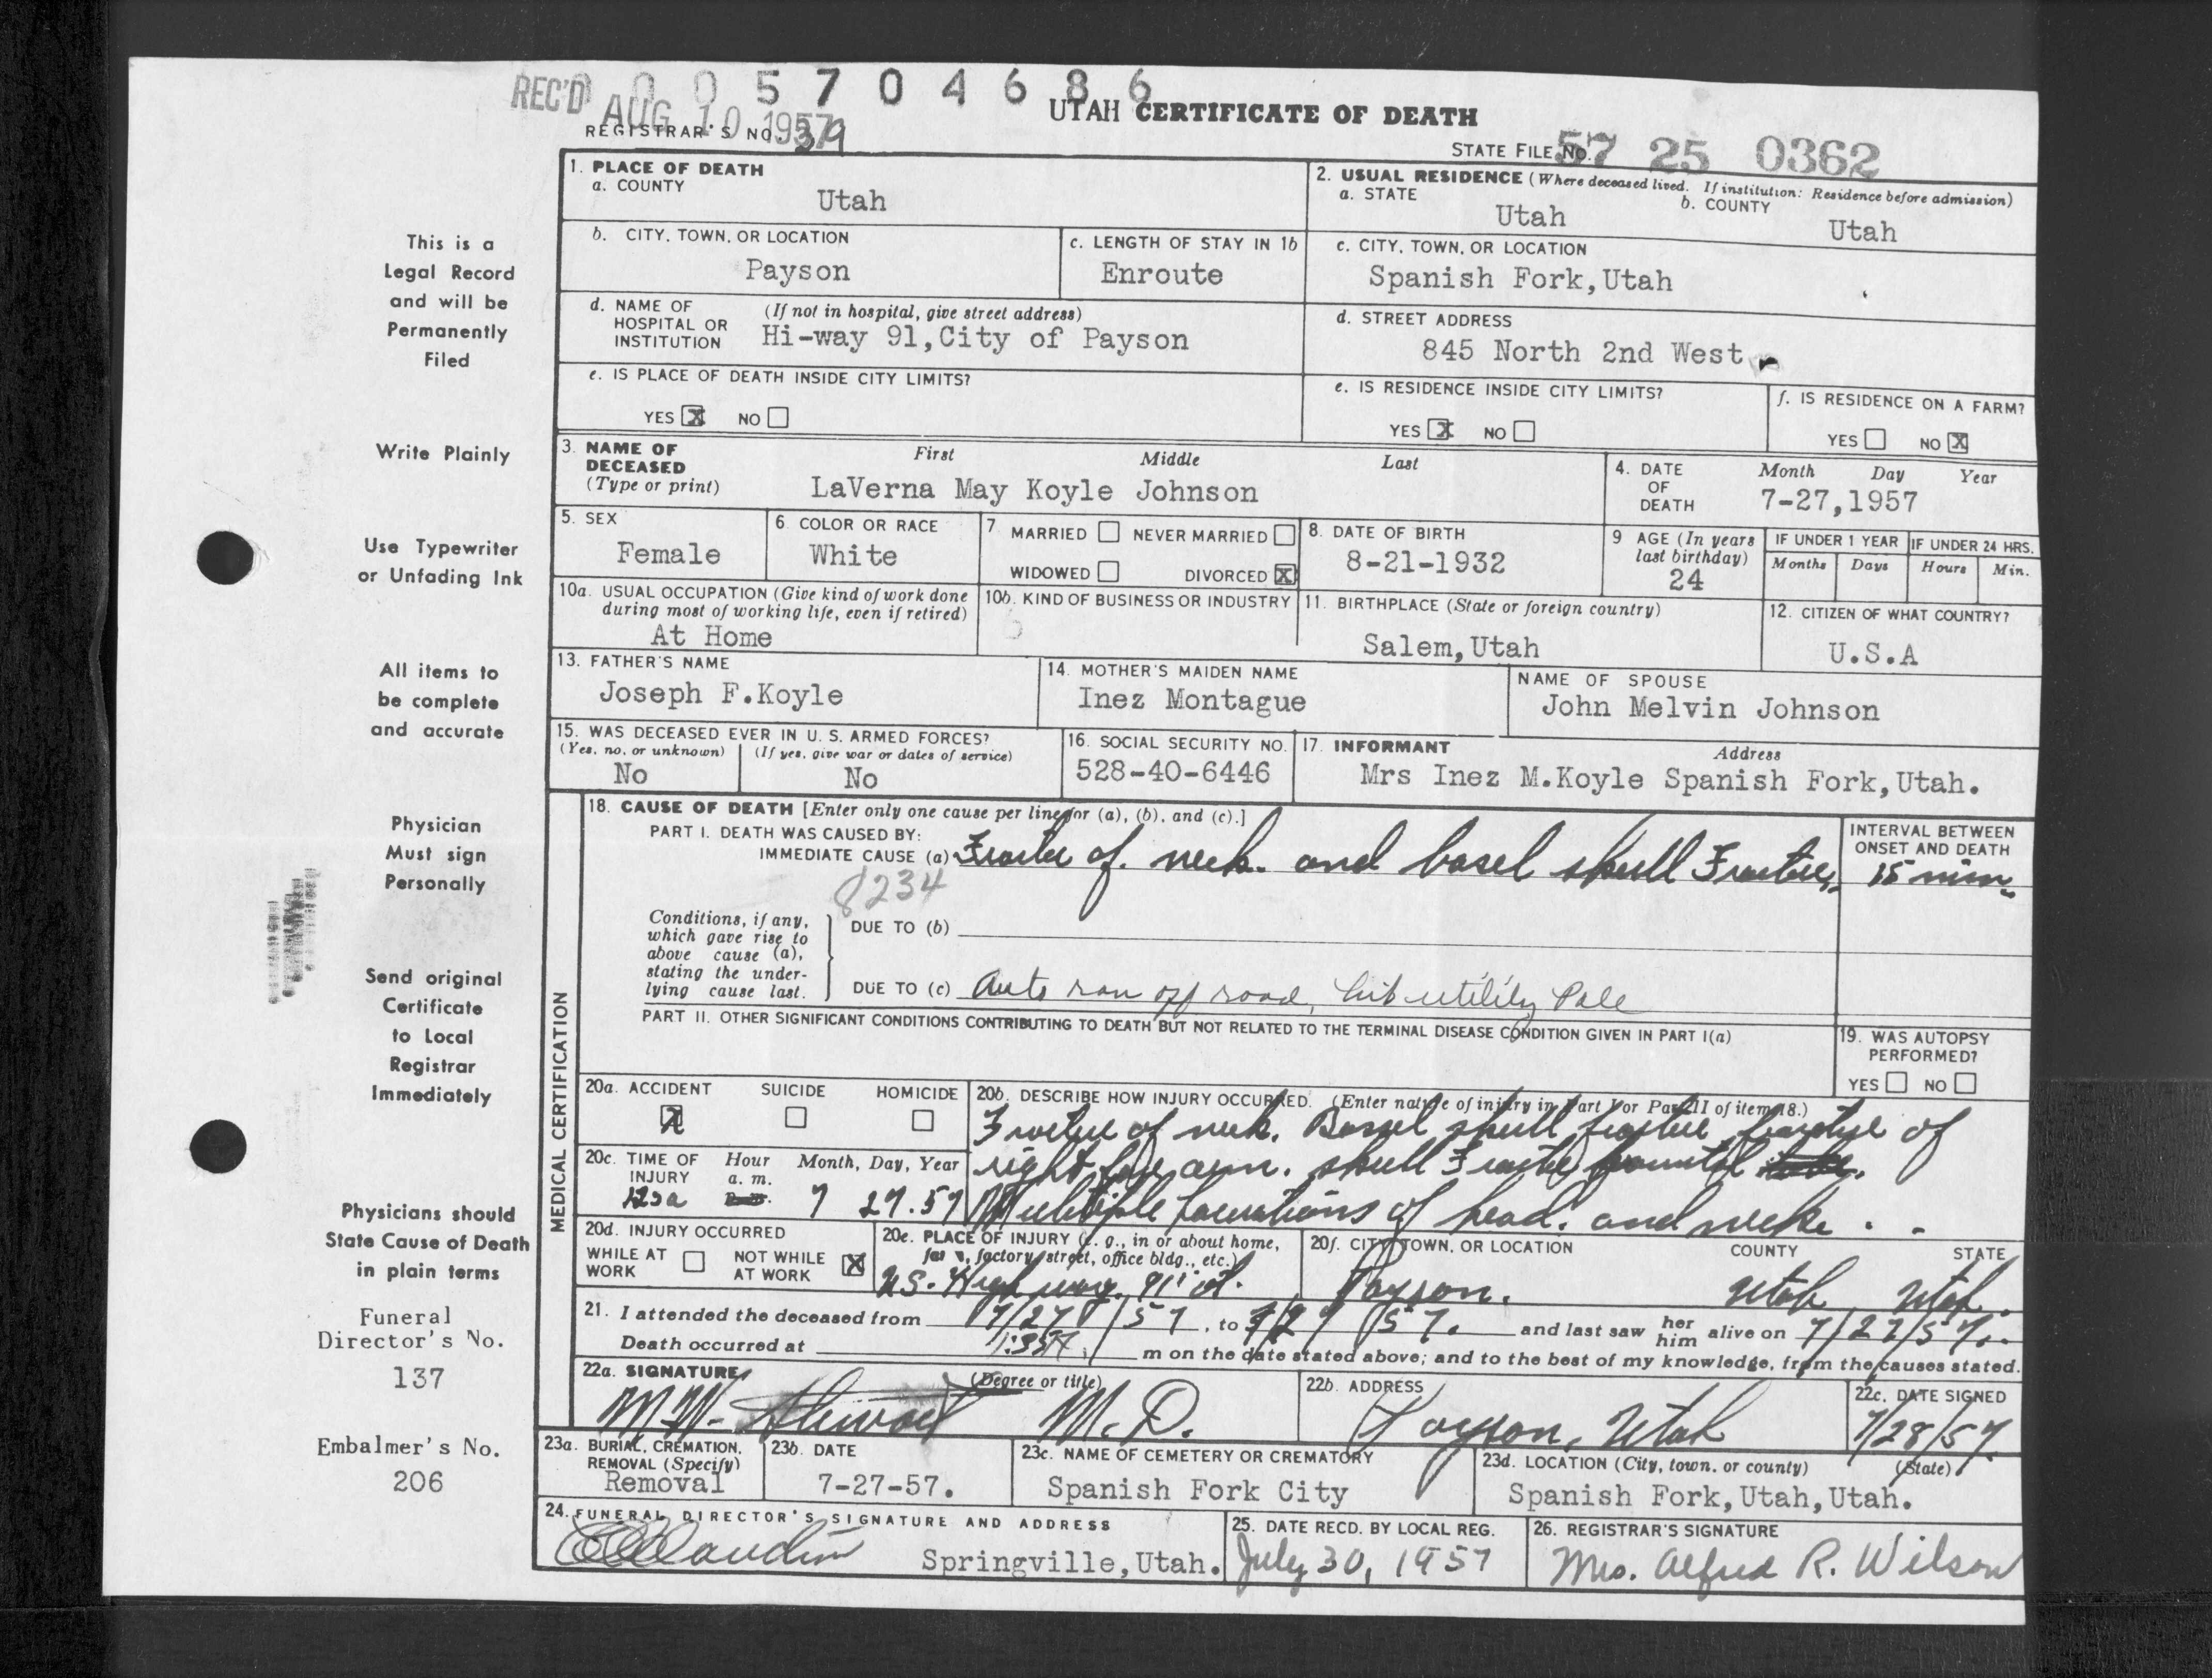 0 0 5 7 0 4 6 8 6
REC'D AUG 10 1957
UTAH CERTIFICATE OF DEATH
REGISTRAR'S NO. 39
STATE FILE NO. 57 25 0362
This is a
Legal Record
and will be
Permanently
Filed
Write Plainly
Use Typewriter
or Unfading Ink
All items to
be complete
and accurate
Physician
Must sign
Personally
Send original
Certificate
to Local
Registrar
Immediately
Physicians should
State Cause of Death
in plain terms
Funeral
Director's No.
137
Embalmer's No.
206
1. PLACE OF DEATH
a. COUNTY
Utah
2. USUAL RESIDENCE (Where deceased lived. If institution: Residence before admission)
a. STATE b. COUNTY
Utah Utah
b. CITY, TOWN, OR LOCATION
Payson
c. LENGTH OF STAY IN 1b
Enroute
c. CITY, TOWN, OR LOCATION
Spanish Fork, Utah
d. NAME OF HOSPITAL OR INSTITUTION (If not in hospital, give street address)
Hi-way 91, City of Payson
d. STREET ADDRESS
845 North 2nd West
e. IS PLACE OF DEATH INSIDE CITY LIMITS?
YES X NO
e. IS RESIDENCE INSIDE CITY LIMITS?
YES X NO
f. IS RESIDENCE ON A FARM?
YES NO X
3. NAME OF DECEASED (Type or print)
First Middle Last
LaVerna May Koyle Johnson
4. DATE OF DEATH
Month Day Year
7-27,1957
5. SEX
Female
6. COLOR OR RACE
White
7. MARRIED NEVER MARRIED
WIDOWED DIVORCED X
8. DATE OF BIRTH
8-21-1932
9 AGE (In years last birthday)
24
IF UNDER 1 YEAR
Months Days
IF UNDER 24 HRS.
Hours Min.
10a. USUAL OCCUPATION (Give kind of work done during most of working life, even if retired)
At Home
10b. KIND OF BUSINESS OR INDUSTRY
11. BIRTHPLACE (State or foreign country)
Salem, Utah
12. CITIZEN OF WHAT COUNTRY?
U.S.A
13. FATHER'S NAME
Joseph F.Koyle
14. MOTHER'S MAIDEN NAME
Inez Montague
NAME OF SPOUSE
John Melvin Johnson
15. WAS DECEASED EVER IN U. S. ARMED FORCES?
(Yes, no, or unknown) (If yes, give war or dates of service)
No No
16. SOCIAL SECURITY NO.
528-40-6446
17. INFORMANT Address
Mrs Inez M.Koyle Spanish Fork, Utah.
MEDICAL CERTIFICATION
18. CAUSE OF DEATH [Enter only one cause per line for (a), (b), and (c).]
PART I. DEATH WAS CAUSED BY:
IMMEDIATE CAUSE (a) of neck and basel skull
8234
INTERVAL BETWEEN ONSET AND DEATH
15 min
Conditions, if any, which gave rise to above cause (a), stating the underlying cause last.
DUE TO (b)
DUE TO (c) Auto ran off road, hit utility Pole
PART II. OTHER SIGNIFICANT CONDITIONS CONTRIBUTING TO DEATH BUT NOT RELATED TO THE TERMINAL DISEASE CONDITION GIVEN IN PART I(a)
19. WAS AUTOPSY PERFORMED?
YES NO
20a. ACCIDENT SUICIDE HOMICIDE
X
20b. DESCRIBE HOW INJURY OCCURRED. (Enter nature of injury in Part I or Part II of item 18.)
of neck. skull of
right arm. skull
Multiple of head. and
20c. TIME OF INJURY Hour Month, Day, Year
a. m.
p. m.
7 27.57
20d. INJURY OCCURRED
WHILE AT WORK NOT WHILE AT WORK X
20e. PLACE OF INJURY (e. g., in or about home, farm, factory, street, office bldg., etc.)
U.S. Highway. 91
20f. CITY, TOWN, OR LOCATION COUNTY STATE
Payson. Utah Utah.
21. I attended the deceased from 7/27/57, to 7/27/57. and last saw her him alive on 7/27/57.
Death occurred at m on the date stated above; and to the best of my knowledge, from the causes stated.
22a. SIGNATURE (Degree or title)
M.W. Stewart M.D.
22b. ADDRESS
Payson, Utah
22c. DATE SIGNED
7/28/57
23a. BURIAL, CREMATION, REMOVAL (Specify)
Removal
23b. DATE
7-27-57.
23c. NAME OF CEMETERY OR CREMATORY
Spanish Fork City
23d. LOCATION (City, town, or county) (State)
Spanish Fork, Utah, Utah.
24. FUNERAL DIRECTOR'S SIGNATURE AND ADDRESS
Springville, Utah.
25. DATE RECD. BY LOCAL REG.
July 30, 1957
26. REGISTRAR'S SIGNATURE
Mrs. Alfred R. Wilson